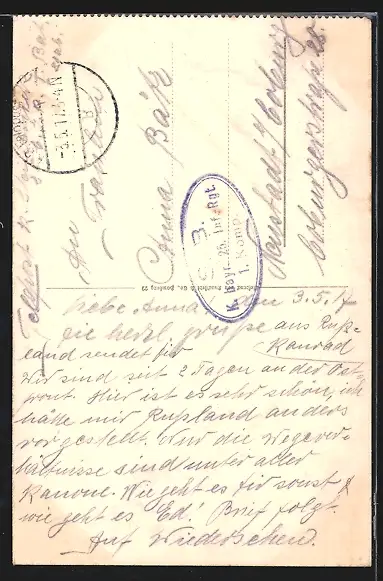 Feldpost
An
Fräulein
Anna Bätz
Neustadt / Coburg
Coburgerstraße 28.
-3.5.17. 4-5 N
S. B.
K. Bayr. 25. Inf. Rgt.
1. Komp.
den 3.5.17
Liebe Anna!
Die herzl. Grüße aus Ruß-
land sendet dir Konrad
Wir sind seit 2 Tagen an der Ost-
front. Hier ist es sehr schön, ich
hätte mir Rußland anders
vorgestellt. Nur die Wegever-
hältnisse sind unter aller
Kanone. Wie geht es dir sonst &
wie geht es Ed! Brief folgt.
Auf Wiedersehen.